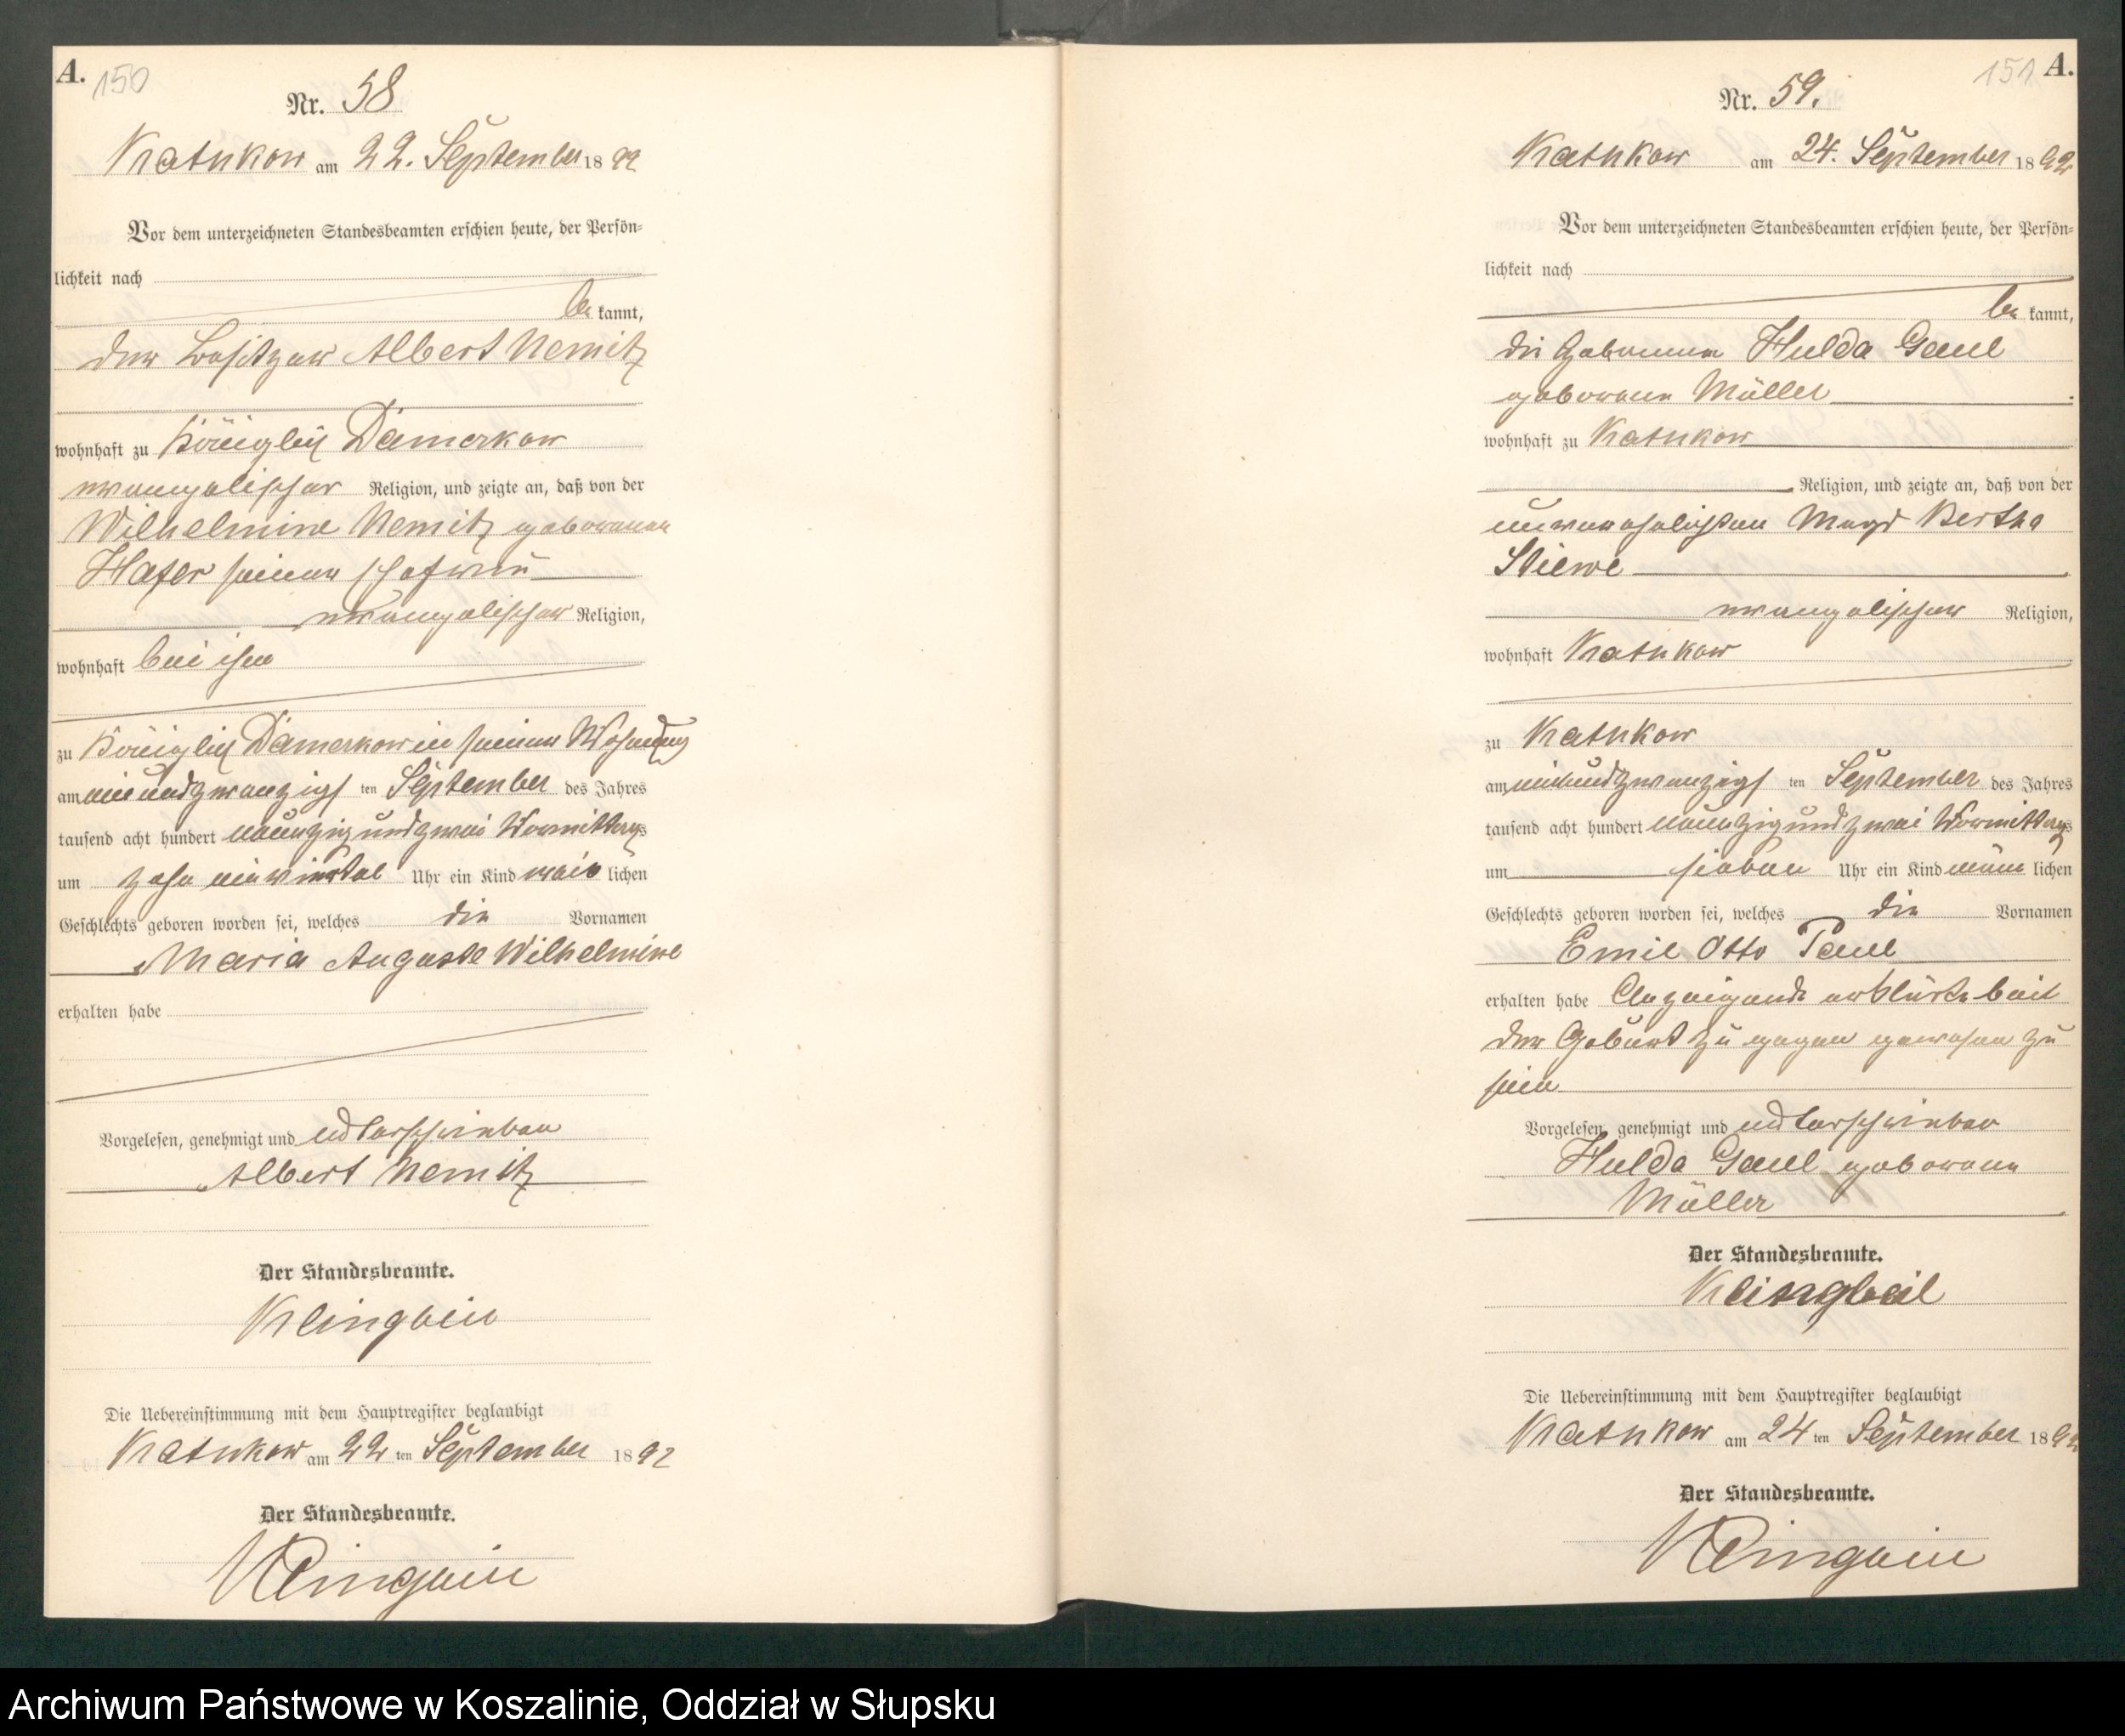 A. 150
Nr. 58
Kathkow am 22. September 1892
Vor dem unterzeichneten Standesbeamten erschien heute, der Persön-
lichkeit nach
be kannt,
der Besitzer Albert Nemitz
wohnhaft zu Königlich Damerkow
evangelischer Religion, und zeigte an, daß von der
Wilhelmine Nemitz geborenen
Hafer seiner Ehefrau
evangelischer Religion,
wohnhaft bei ihm
zu Königlich Damerkow in seiner Wohnung
am einundzwanzigs ten September des Jahres
tausend acht hundert neunzig und zwei Vormittags
um zehn einviertel Uhr ein Kind weib lichen
Geschlechts geboren worden sei, welches die Vornamen
Maria Auguste Wilhelmine
erhalten habe
Vorgelesen, genehmigt und unterschrieben
Albert Nemitz
Der Standesbeamte.
Klingbeil
Die Uebereinstimmung mit dem Hauptregister beglaubigt
Kathkow am 22 ten September 1892
Der Standesbeamte.
Klingbeil
151 A.
Nr. 59.
Kathkow am 24. September 1892
Vor dem unterzeichneten Standesbeamten erschien heute, der Persön-
lichkeit nach
be kannt,
die Hebamme Hulda Gaul
geborene Müller
wohnhaft zu Kathkow
Religion, und zeigte an, daß von der
unverehelichten Magd Bertha
Stiewe
evangelischer Religion,
wohnhaft Kathkow
zu Kathkow
am einundzwanzigs ten September des Jahres
tausend acht hundert neunzig und zwei Vormittags
um sieben Uhr ein Kind männ lichen
Geschlechts geboren worden sei, welches die Vornamen
Emil Otto Paul
erhalten habe Anzeigende erklärte bei
der Geburt zu gegen gewesen zu
sein
Vorgelesen, genehmigt und unterschrieben
Hulda Gaul geborene
Müller
Der Standesbeamte.
Klingbeil
Die Uebereinstimmung mit dem Hauptregister beglaubigt
Kathkow am 24 ten September 1892
Der Standesbeamte.
Klingbeil
Archiwum Państwowe w Koszalinie, Oddział w Słupsku